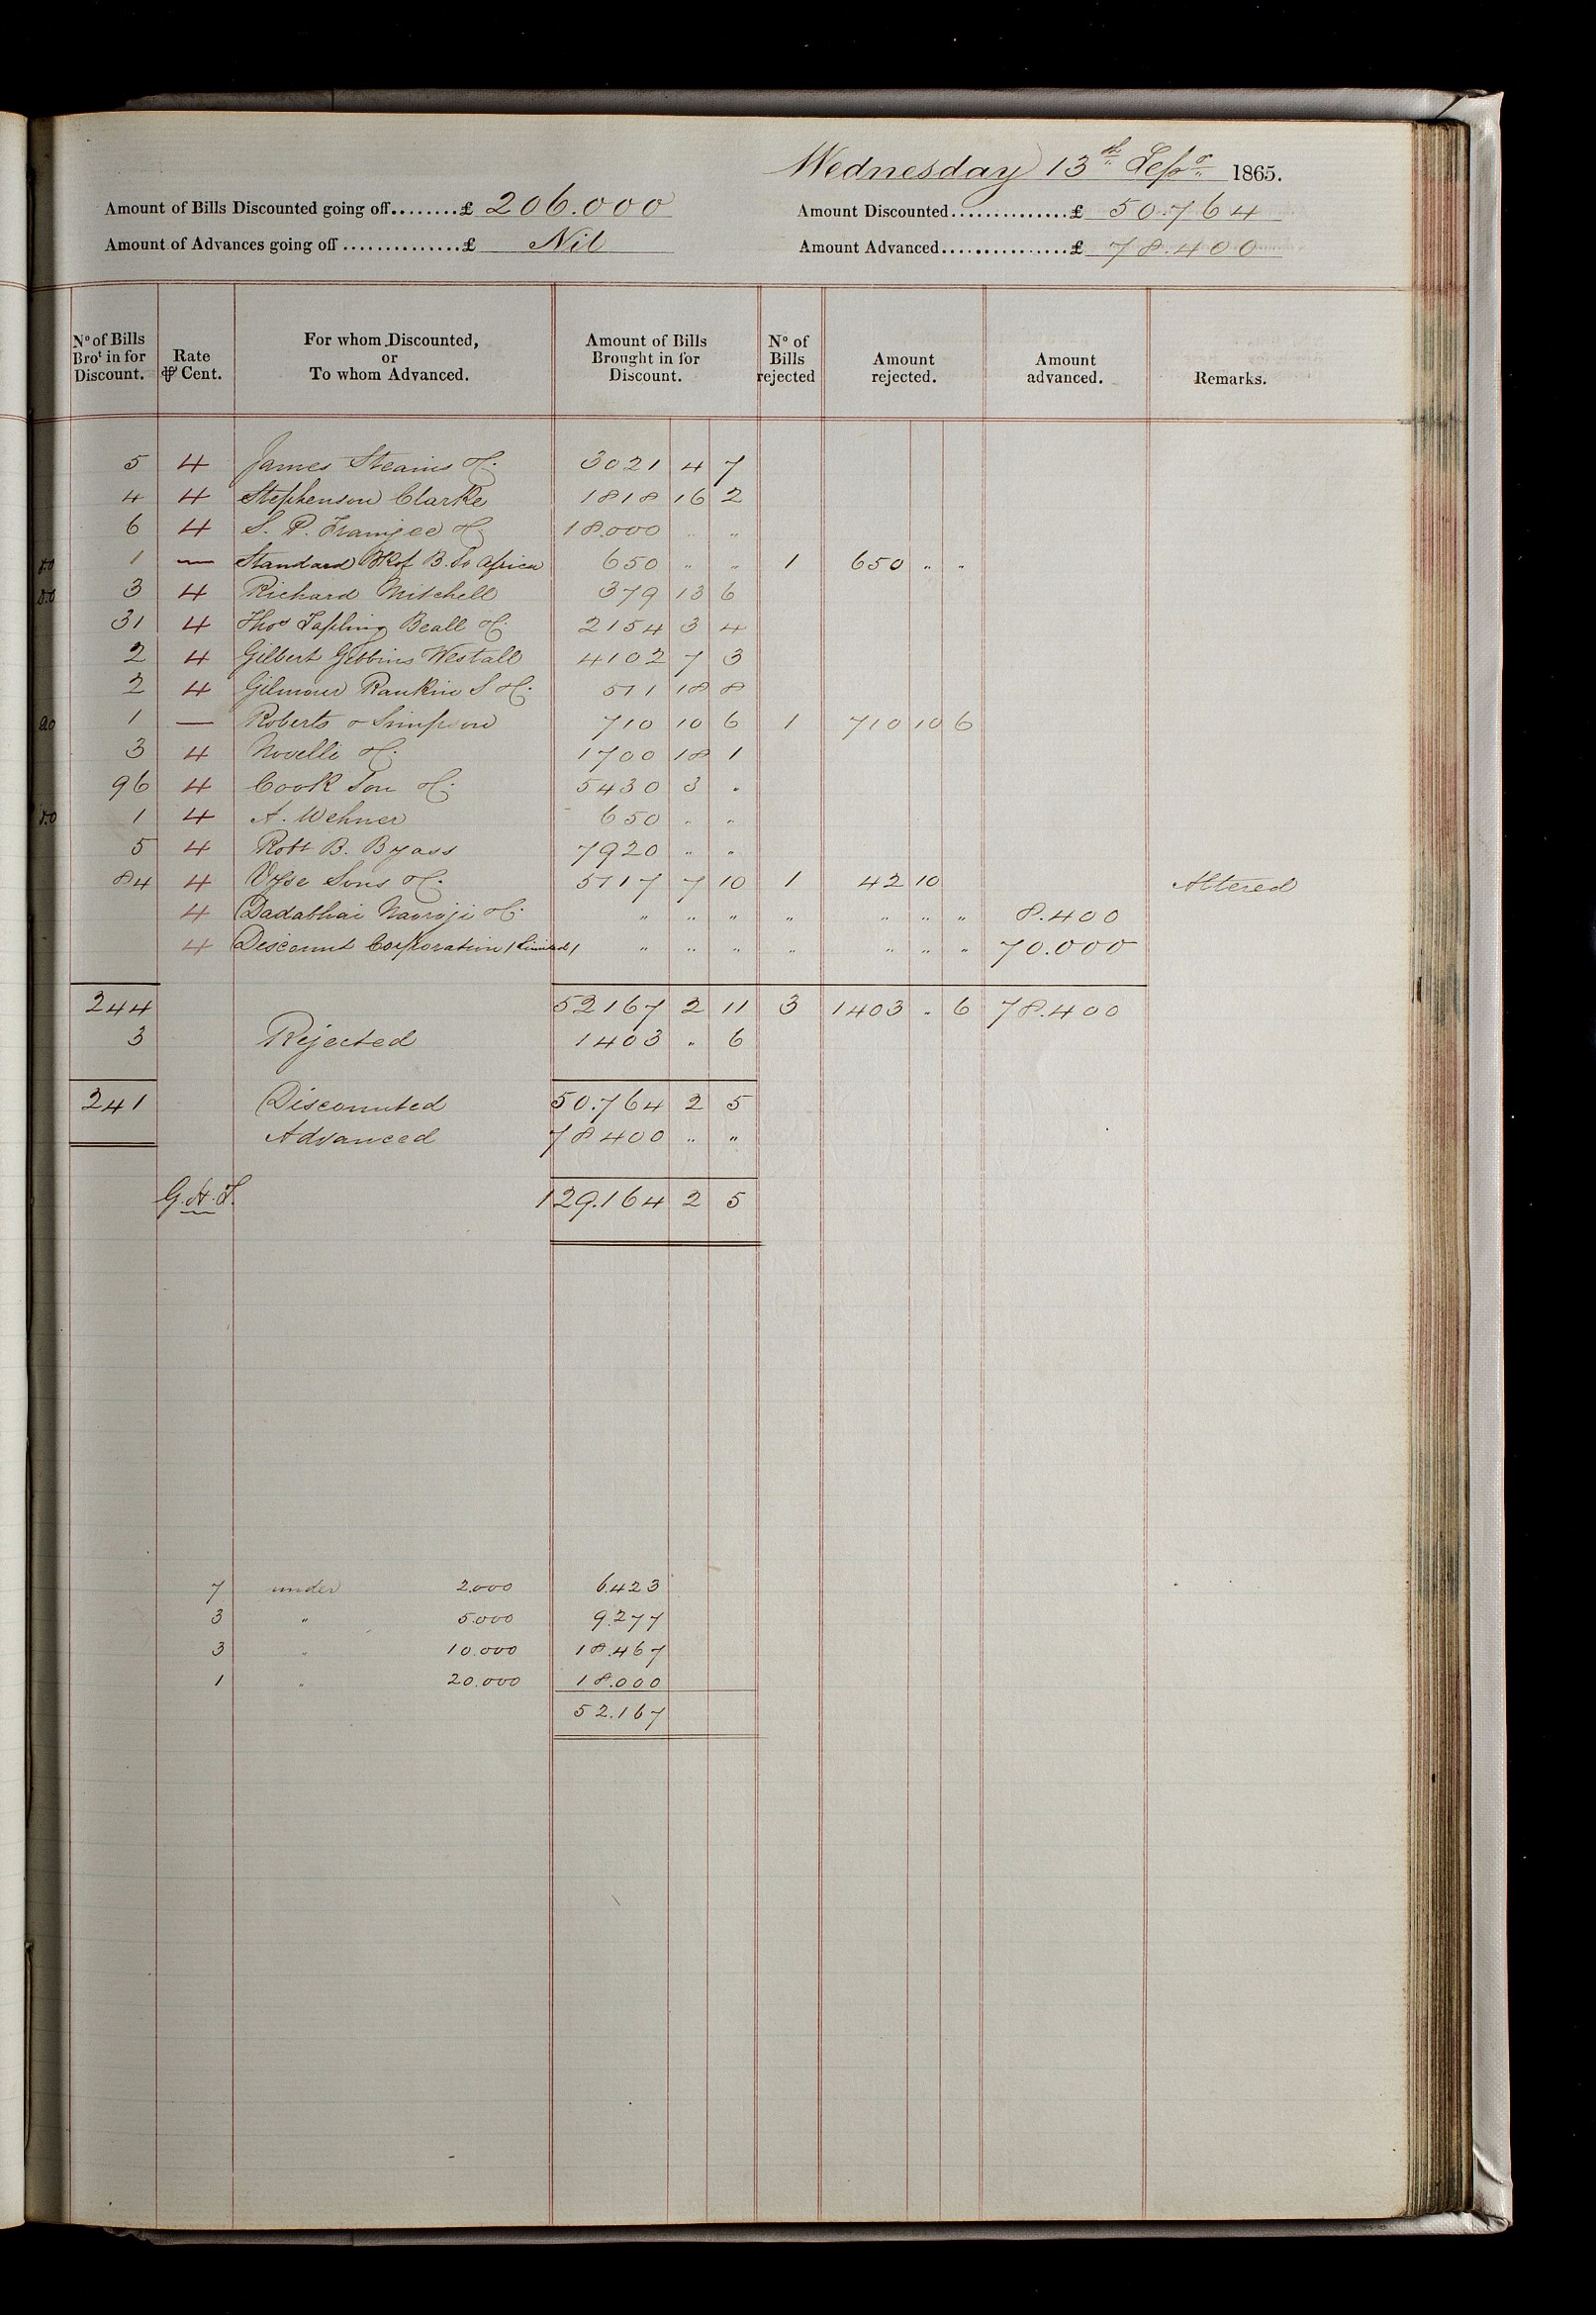 Wednesday 13th Sepr 1865.
Amount of Bills Discounted going off........£ 206.000 Amount Discounted..............£ 50.764
Amount of Advances going off..............£ Nil Amount Advanced...............£ 78.400
No of Bills Brot in for Discount. Rate ⅌ Cent. For whom Discounted, or To whom Advanced. Amount of Bills Brought in for Discount. No of Bills rejected Amount rejected. Amount advanced. Remarks.
5 4 James Steains & Co. 3021 4 7
4 4 Stephenson Clarke 1818 16 2
6 4 S. P. Framjee & Co 18.000 " "
1 — Standard Bk of B. So Africa 650 " " 1 650 " "
3 4 Richard Mitchell 379 13 6
31 4 Thos Tapling Beall & Co. 2154 3 4
2 4 Gilbert Gibbins Westall 4102 7 3
2 4 Gilmour Rankin S & Co. 511 18 8
1 — Roberts & Simpson 710 10 6 1 710 10 6
3 4 Novelli & Co. 1700 18 1
96 4 Cook Son & Co. 5430 3 "
1 4 A. Wehner 650 " "
5 4 Robt B. Byass 7920 " "
84 4 Vyse Sons & Co. 5117 7 10 1 42 10 Altered
4 Dadabhai Naoroji & Co. " " " " " " " 8.400
4 Discount Corporation (Limited) " " " " " " " 70.000
244 52167 2 11 3 1403 " 6 78.400
3 Rejected 1403 " 6
241 Discounted 50.764 2 5
Advanced 78400 " "
G.A.T. 129.164 2 5
7 under 2.000 6.423
3 " 5.000 9.277
3 " 10.000 18.467
1 " 20.000 18.000
52.167